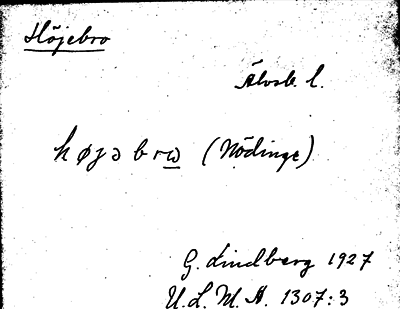 Höjebro
Älvsb. l.
högəbrω (Nödinge)
G. Lindberg 1927
U.L.M.A. 1307:3